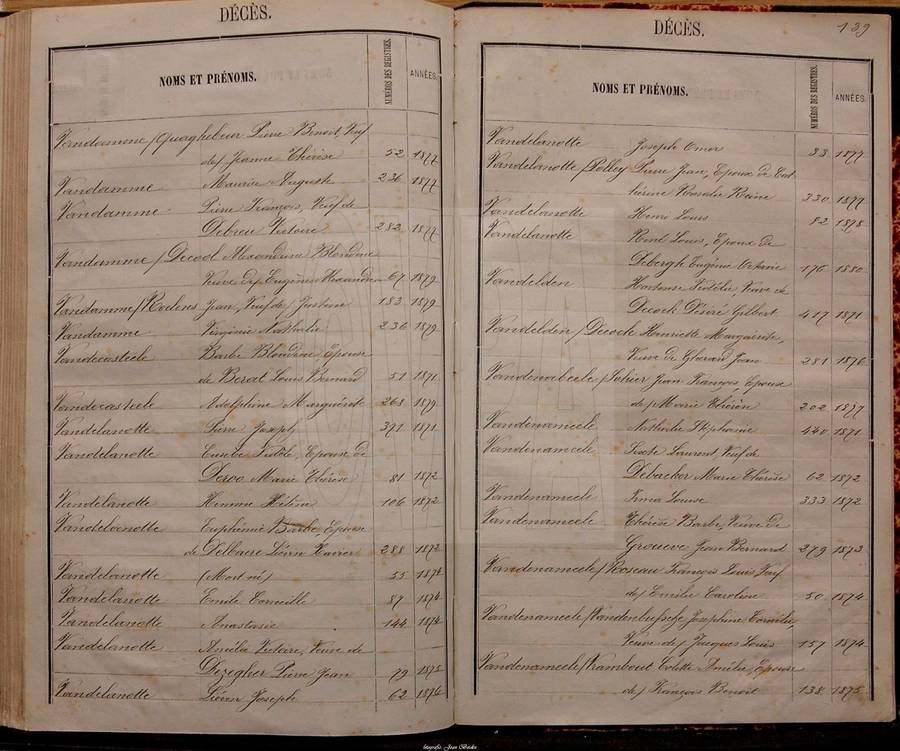 DÉCÈS.
NOMS ET PRÉNOMS.
NUMÉROS DES REGISTRES.
ANNÉES.
Vandamme / Quaghebeur Pierre Benoit, Veuf
de / Jeanne Thérèse 52 1877
Vandamme Maurice Auguste 236 1877
Vandamme Pierre François, Veuf de
Debreu Victoire 282 1877
Vandamme / Decool Alexandrine Blondine
Veuve de / Eugène Alexandre 67 1879
Vandamme / Roelens Jean, Veuf de / Justine 183 1879
Vandamme Virginie Nathalie 236 1879
Vandecasteele Barbe Blondine, Epouse
de Louis Bernard 51 1871
Vandecasteele Adolphine Marguérite 268 1879
Vandelanotte Pierre Joseph 391 1871
Vandelanotte Eusèbe Fidèle, Epoux de
Deroo Marie Thérèse 81 1872
Vandelanotte Hélène 106 1872
Vandelanotte Euphémie Barbe, Epouse
de Delbaere Liévin Xavier 288 1872
Vandelanotte (Mort né) 55 1874
Vandelanotte Emile Corneille 87 1874
Vandelanotte Anastasie 144 1874
Vandelanotte Amélie Victoire, Veuve de
Dezegher Pierre Jean 79 1875
Vandelanotte Liévin Joseph 62 1876
DÉCÈS.
139
NOMS ET PRÉNOMS.
NUMÉROS DES REGISTRES.
ANNÉES.
Vandelanotte Joseph Omer 33 1877
Vandelanotte / Polley Pierre Jean, Epoux de Cat
hérine Rosalie Reine 330 1877
Vandelanotte Henri Louis 82 1878
Vandelanotte René Louis, Epoux de
Debergh Eugénie Octavie 176 1880
Vandelden Hortense Fidélia, Veuve de
Decock Désiré Gilbert 417 1871
Vandelden / Decock Henriette Marguérite,
Veuve de Gherard Jean 281 1876
Vandenabeele / Sohier Jean François, Epoux
de / Marie Thérèse 202 1877
Vandenameele Nathalie Stéphanie 440 1871
Vandenameele Sixte Laurent, Veuf de
Debacker Marie Thérèse 62 1872
Vandenameele Irma Louise 333 1872
Vandenameele Thérèse Barbe, Veuve de
Jean Bernard 279 1873
Vandenameele / Roseau François Louis, Veuf
de / Emilie Caroline 50 1874
Vandenameele / Vandenbussche Joséphine Cornélie,
Veuve de / Jacques Louis 157 1874
Vandenameele / Vambout Colette Amélie, Epouse
de / François Benoit 138 1875
fotografie Jean Boeckx